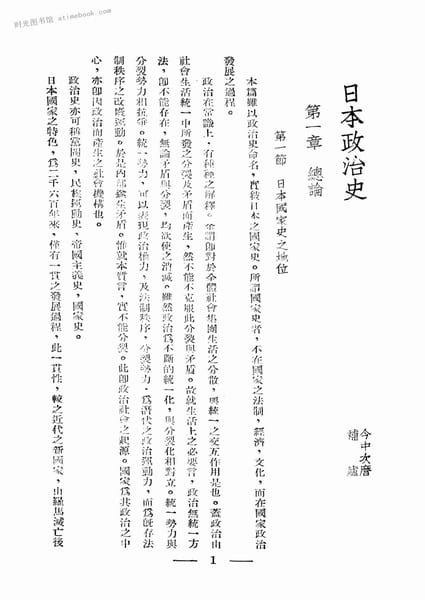 时光图书馆 · atimebook.com
日本政治史
今中次麿
第一章 總論
第一節 日本國家史之地位
本篇雖以政治史命名，實敍日本之國家史。所謂國家史者，不在國家之法制，經濟，文化，而在國家政治
發展之過程。
政治在常識上，有種種之解釋。謂卽對於全體社會集團生活之分散，與統一之交互作用是也。蓋政治由
社會生活統一中所發之分裂及矛盾而產生，然不能不克服此分裂與矛盾。故就生活上之必要言，政治無統一方
法，卽不能存在，無論矛盾與分裂，均欲使之消滅。雖然政治爲不斷的統一化，與分裂化相對立。統一勢力與
分裂勢力相抗衡。統一勢力，可以表現政治權力，及法制秩序，分裂勢力，爲潛伏之政治運動力，而爲旣存法
制秩序之改廢運動。於是內部發生矛盾。惟就本質言，實不能分裂。此卽政治社會之起源。國家爲其政治之中
心，亦卽因政治而產生之社會機構也。
政治史亦可稱黨閥史，民權運動史，帝國主義史，國家史。
日本國家之特色，爲二千六百年來，僅有一貫之發展過程，此一貫性，較之近代之新國家，由羅馬滅亡後
1